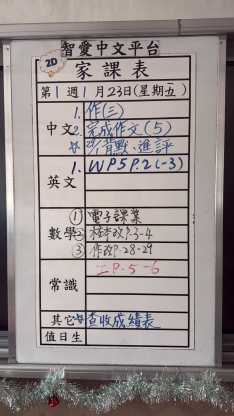 2D
智愛中文平台
家課表
第1週1月23日(星期五)
中文 1. 作(三)
2. 完成作文(5)
☆ 背默、進評
英文 1. WP5P.2(-3)
數學 ① 電子課業
② 改P.3-4
③ 作改P.28-29
常識 P.5-6
其它 ☆查收成績表
值日生